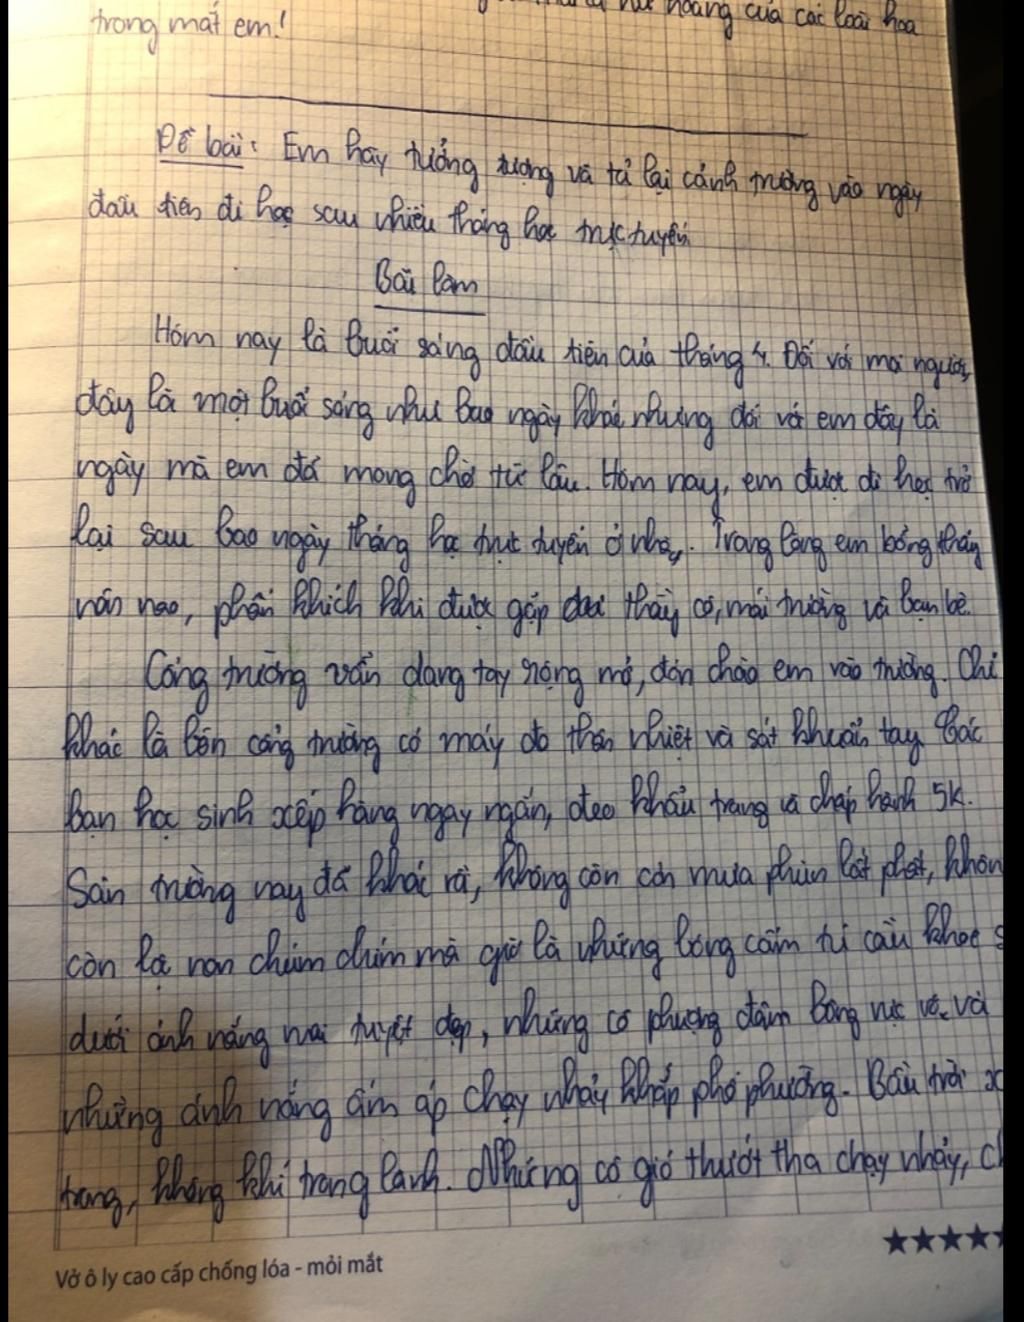 nữ hoàng của các loài hoa
trong mắt em!
Đề bài: Em hãy tưởng tượng và tả lại cảnh trường vào ngày
đầu tiên đi học sau nhiều tháng học trực tuyến.
Bài làm
Hôm nay là buổi sáng đầu tiên của tháng 4. Đối với mọi người,
đây là một buổi sáng như bao ngày khác nhưng đối với em đây là
ngày mà em đã mong chờ từ lâu. Hôm nay, em được đi học trở
lại sau bao ngày tháng học trực tuyến ở nhà. Trong lòng em bỗng thấy
nôn nao, phấn khích khi được gặp thầy cô, mái trường và bạn bè.
Cổng trường vẫn dang tay rộng mở, đón chào em vào trường. Chỉ
khác là bên cổng trường có máy đo thân nhiệt và sát khuẩn tay. Các
bạn học sinh xếp hàng ngay ngắn, đeo khẩu trang và chấp hành 5K.
Sân trường nay đã khác rồi, không còn cơn mưa phùn lất phất, khôn
còn lá non chúm chím mà giờ là những bông cẩm tú cầu khoe s
dưới ánh nắng mai tuyệt đẹp, những cô phượng đâm bông rực rỡ và
những ánh nắng ấm áp chạy nhảy khắp phố phường. Bầu trời x
trong, không khí trong lành. Những cô gió thướt tha chạy nhảy, c
Vở ô ly cao cấp chống lóa - mỏi mắt